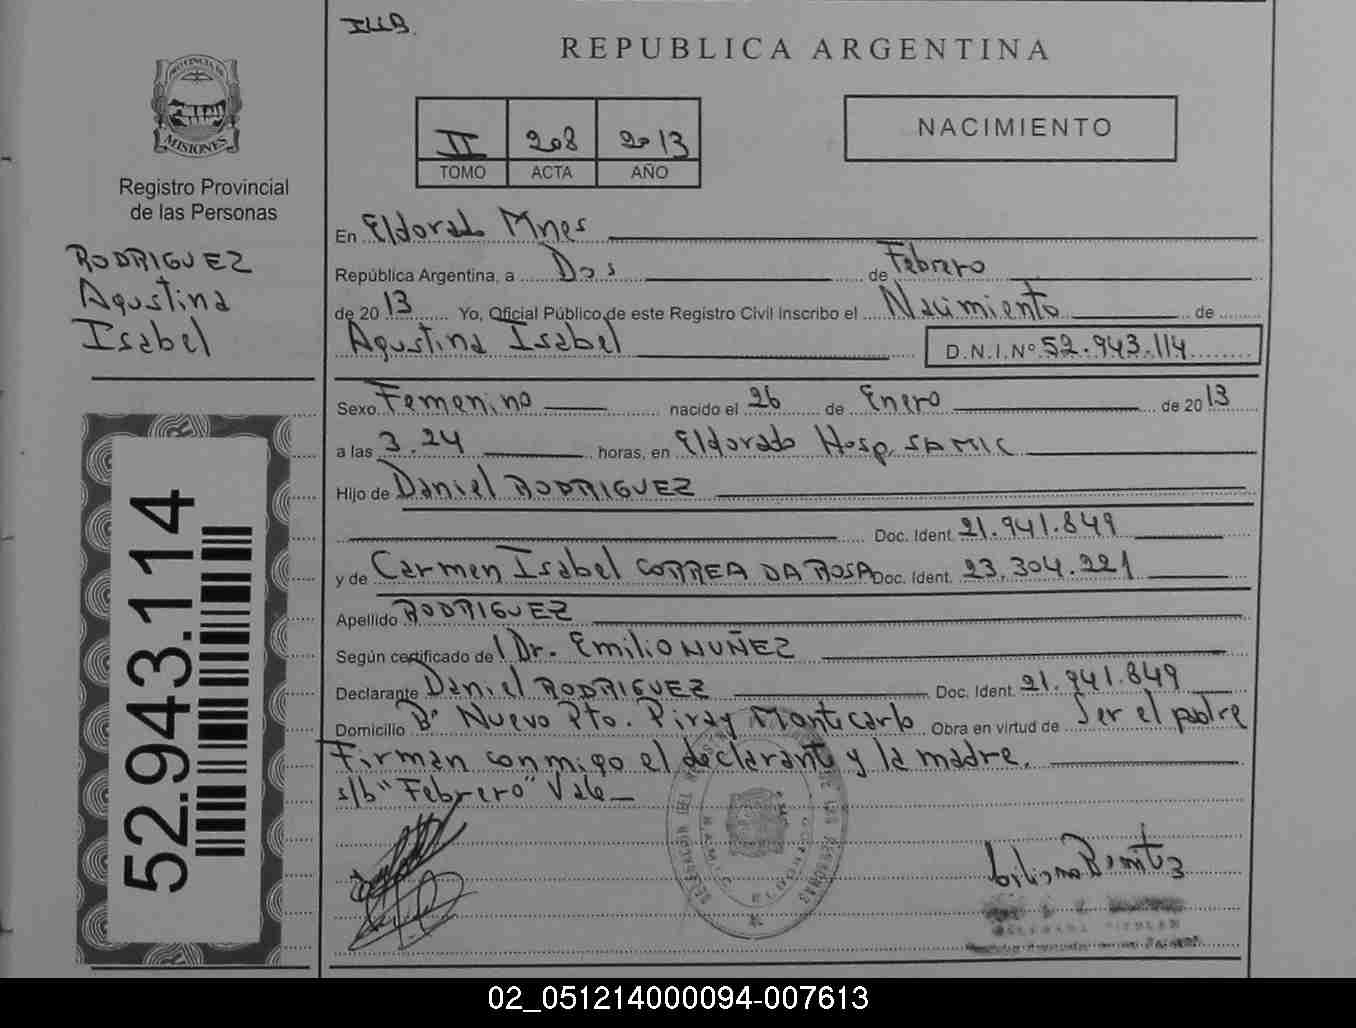 ILLB.
REPUBLICA ARGENTINA
PROVINCIA DE
MISIONES
Registro Provincial
de las Personas
RODRIGUEZ
Agustina
Isabel
52.943.114
II 208 2013
TOMO ACTA AÑO
NACIMIENTO
En Eldorado Mnes
República Argentina, a Dos de Febrero
de 2013 Yo, Oficial Público de este Registro Civil inscribo el Nacimiento de
Agustina Isabel D.N.I.Nº 52.943.114
Sexo Femenino nacido el 26 de Enero de 2013
a las 3.24 horas, en Eldorado Hosp. SAMIC
Hijo de Daniel RODRIGUEZ
Doc. Ident. 21.941.849
y de Carmen Isabel CORREA DA ROSA Doc. Ident. 23.304.221
Apellido RODRIGUEZ
Según certificado del Dr. Emilio NUÑEZ
Declarante Daniel RODRIGUEZ Doc. Ident. 21.941.849
Domicilio Bº Nuevo Pto. Piray Montecarlo Obra en virtud de Ser el padre
Firman conmigo el declarante y la madre.
s/b "Febrero" Vale
02_051214000094-007613